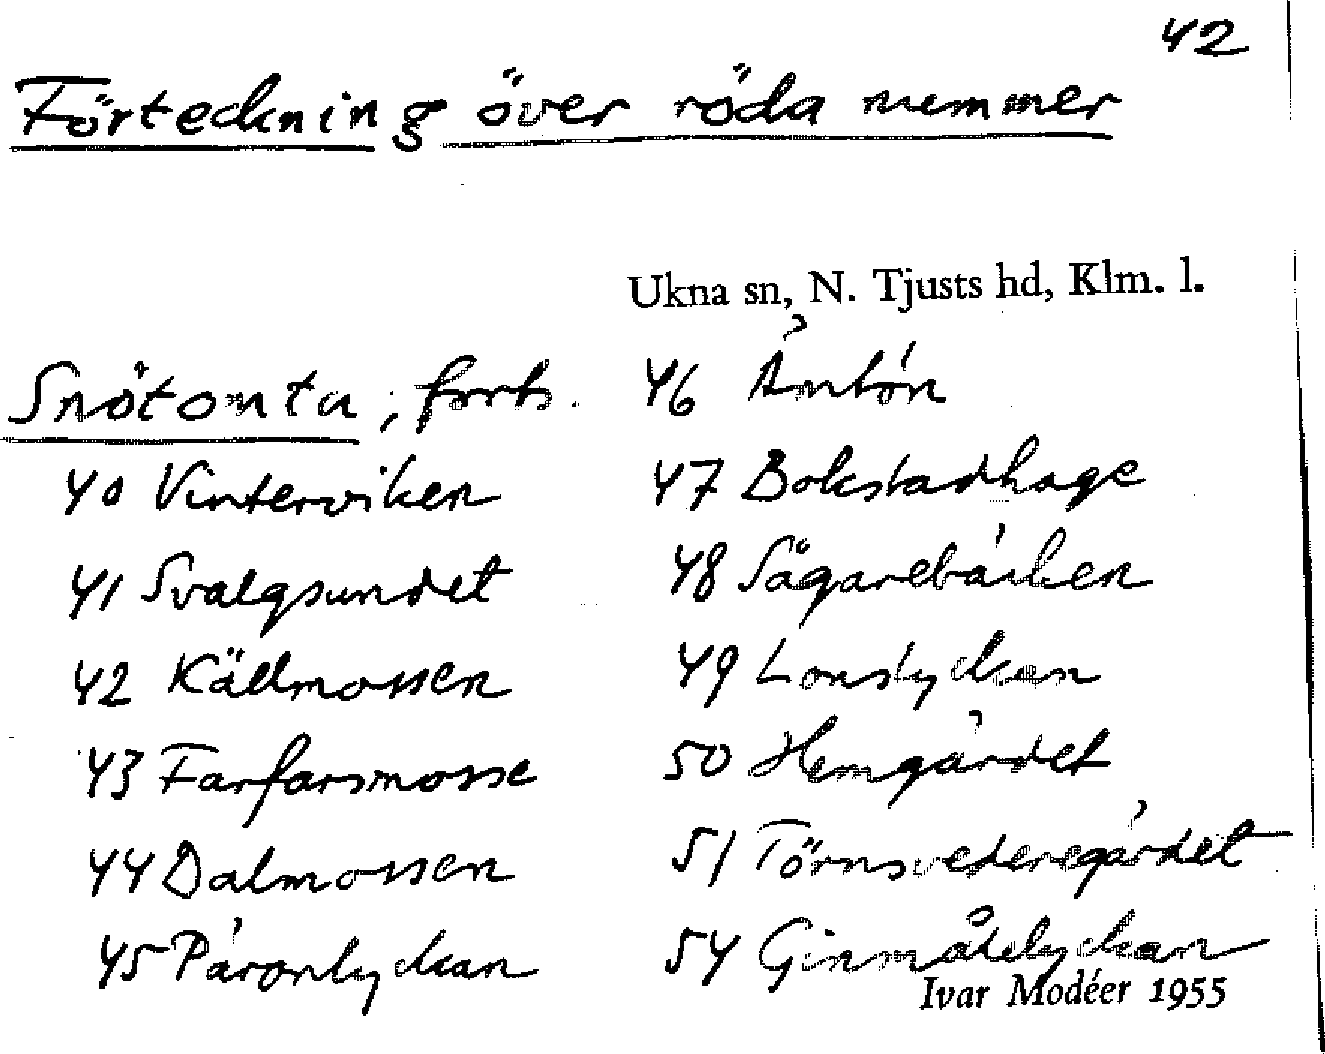 42
Förteckning över röda nummer
Ukna sn, N. Tjusts hd, Klm. l.
Snötomta, forts.
40 Vinterviken
41 Svalgsundet
42 Källmossen
43 Farfarsmosse
44 Dalmossen
45 Päronlyckan
46
47 Bokstadhage
48 Sågarebäcken
49 Lonslyckan
50 Hemgärdet
51 Törnsvederegärdet
54 Ginmålelyckan
Ivar Modéer 1955